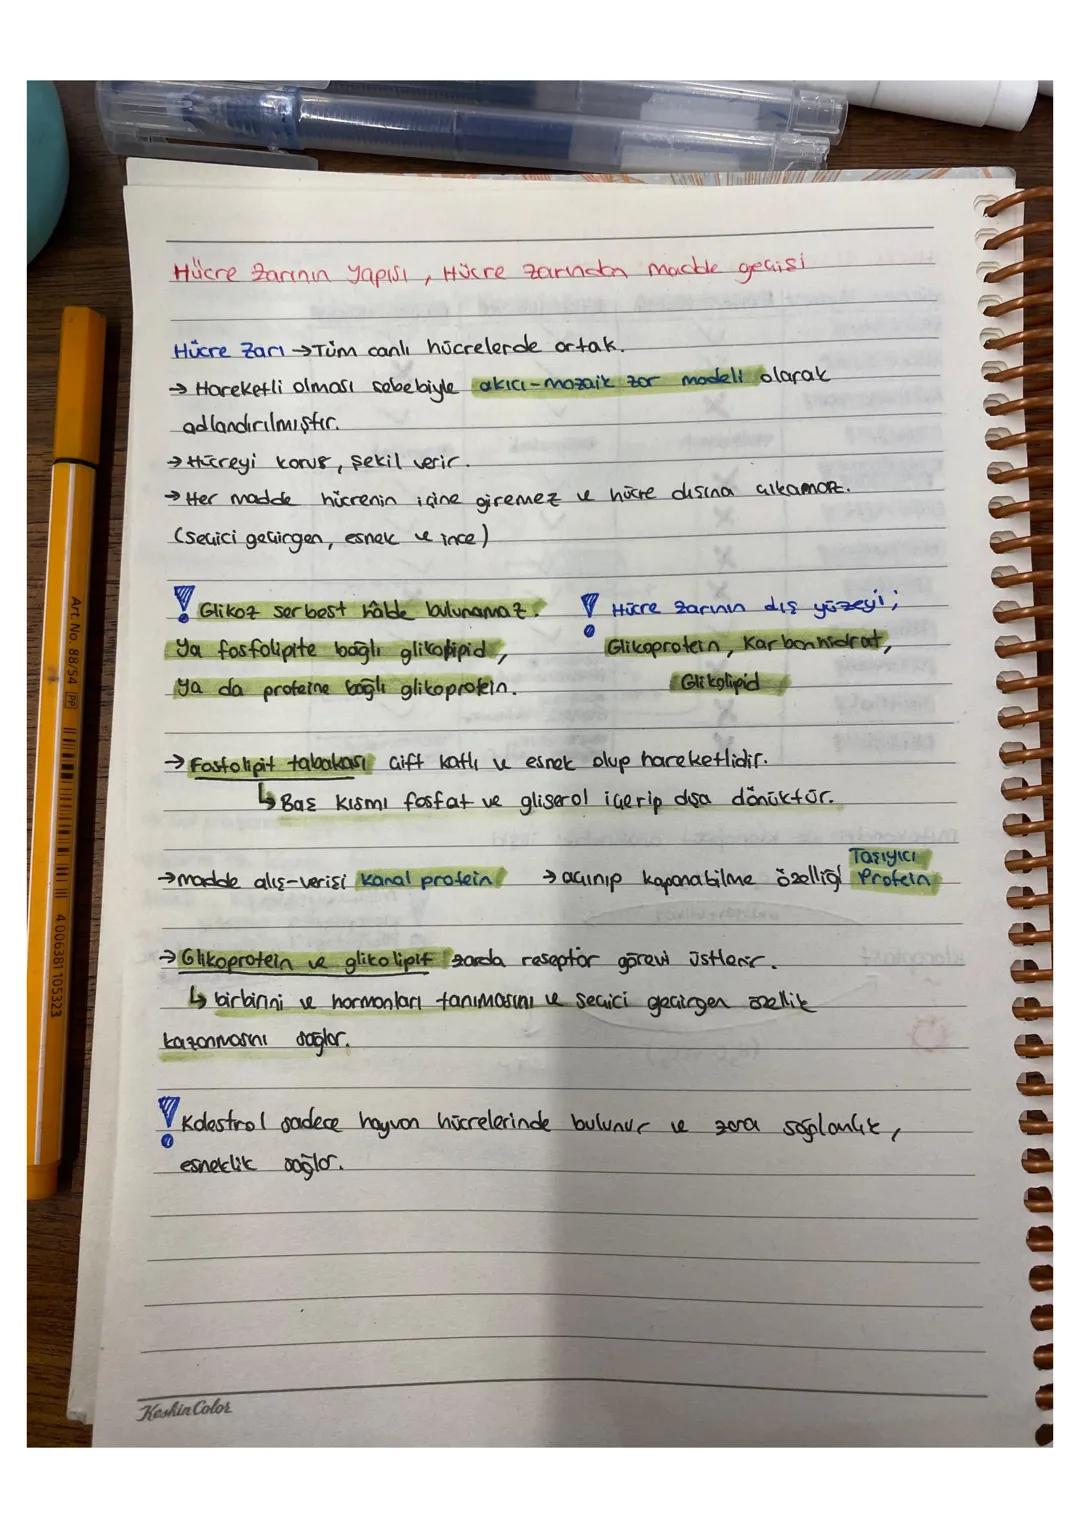 Hücre Zarının Yapısı, Hücre Zarından madde geçişi
Hücre Zarı →Tüm canlı hücrelerde ortak.
→ Hareketli olması sebebiyle akıcı-mozaik zar modeli olarak
adlandırılmıştır.
→ Hücreyi korur, şekil verir.
→ Her madde hücrenin içine giremez ve hücre dışına çıkamaz.
(seçici geçirgen, esnek ve ince)
! Glikoz serbest halde bulunamaz.
Ya fosfolipite bağlı glikolipid,
ya da proteine bağlı glikoprotein.
! Hücre zarının dış yüzeyi;
Glikoprotein, Karbonhidrat,
Glikolipid
→ Fosfolipit tabakası çift katlı ve esnek olup hareketlidir.
↳ Baş kısmı fosfat ve gliserol içerip dışa dönüktür.
→madde alış-verişi Kanal protein
→ açınıp kapanabilme özelliği Taşıyıcı
Protein
→ Glikoprotein ve glikolipit zarda reseptör görevi üstlenir.
↳ birbirini ve hormonları tanımasını ve seçici geçirgen özellik
kazanmasını sağlar.
! Kolestrol sadece hayvan hücrelerinde bulunur ve zara sağlamlık,
esneklik sağlar.
KeskinColor
Art. No. 88/54 PP
4 006381 105323